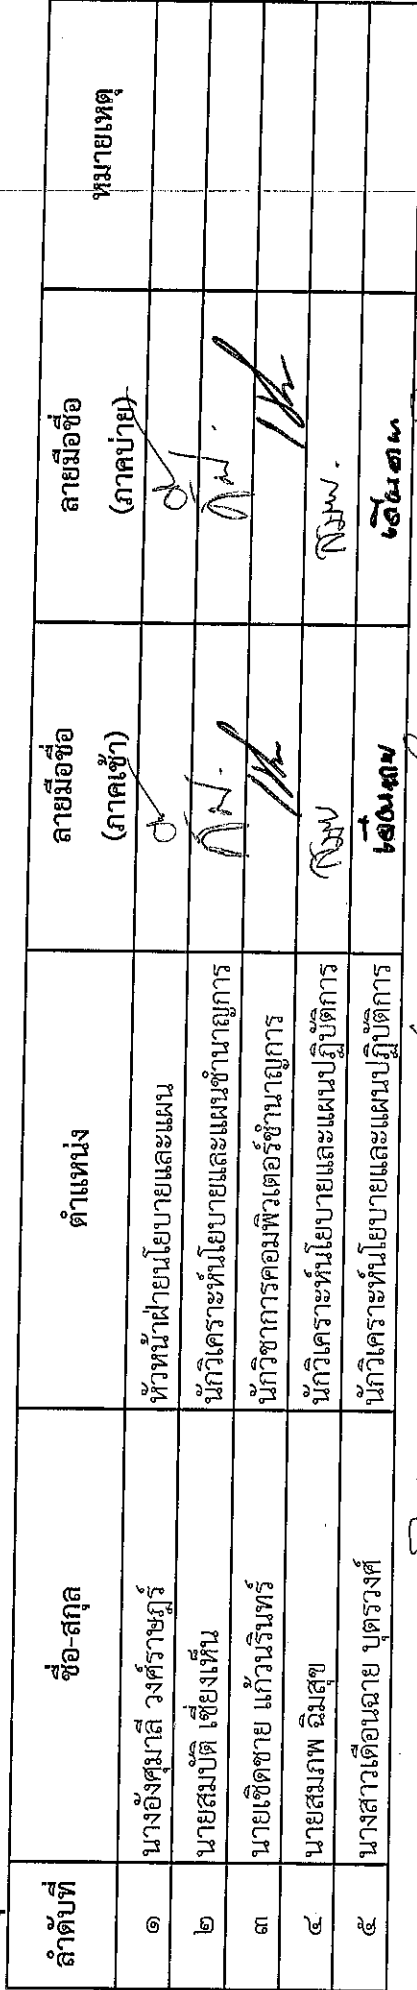 ลำดับที่ ชื่อ-สกุล ตำแหน่ง ลายมือชื่อ (ภาคเช้า) ลายมือชื่อ (ภาคบ่าย) หมายเหตุ
๑ นางอังศุมาลี วงศ์ราษฎร์ หัวหน้าฝ่ายนโยบายและแผน
๒ นายสมบัติ เชี่ยงเห็น นักวิเคราะห์นโยบายและแผนชำนาญการ
๓ นายเชิดชาย แก้วนรินทร์ นักวิชาการคอมพิวเตอร์ชำนาญการ
๔ นายสมภพ ฉิมสุข นักวิเคราะห์นโยบายและแผนปฏิบัติการ สมภพ สมภพ.
๕ นางสาวเดือนฉาย บุตรวงศ์ นักวิเคราะห์นโยบายและแผนปฏิบัติการ เดือนฉาย เดือนฉาย